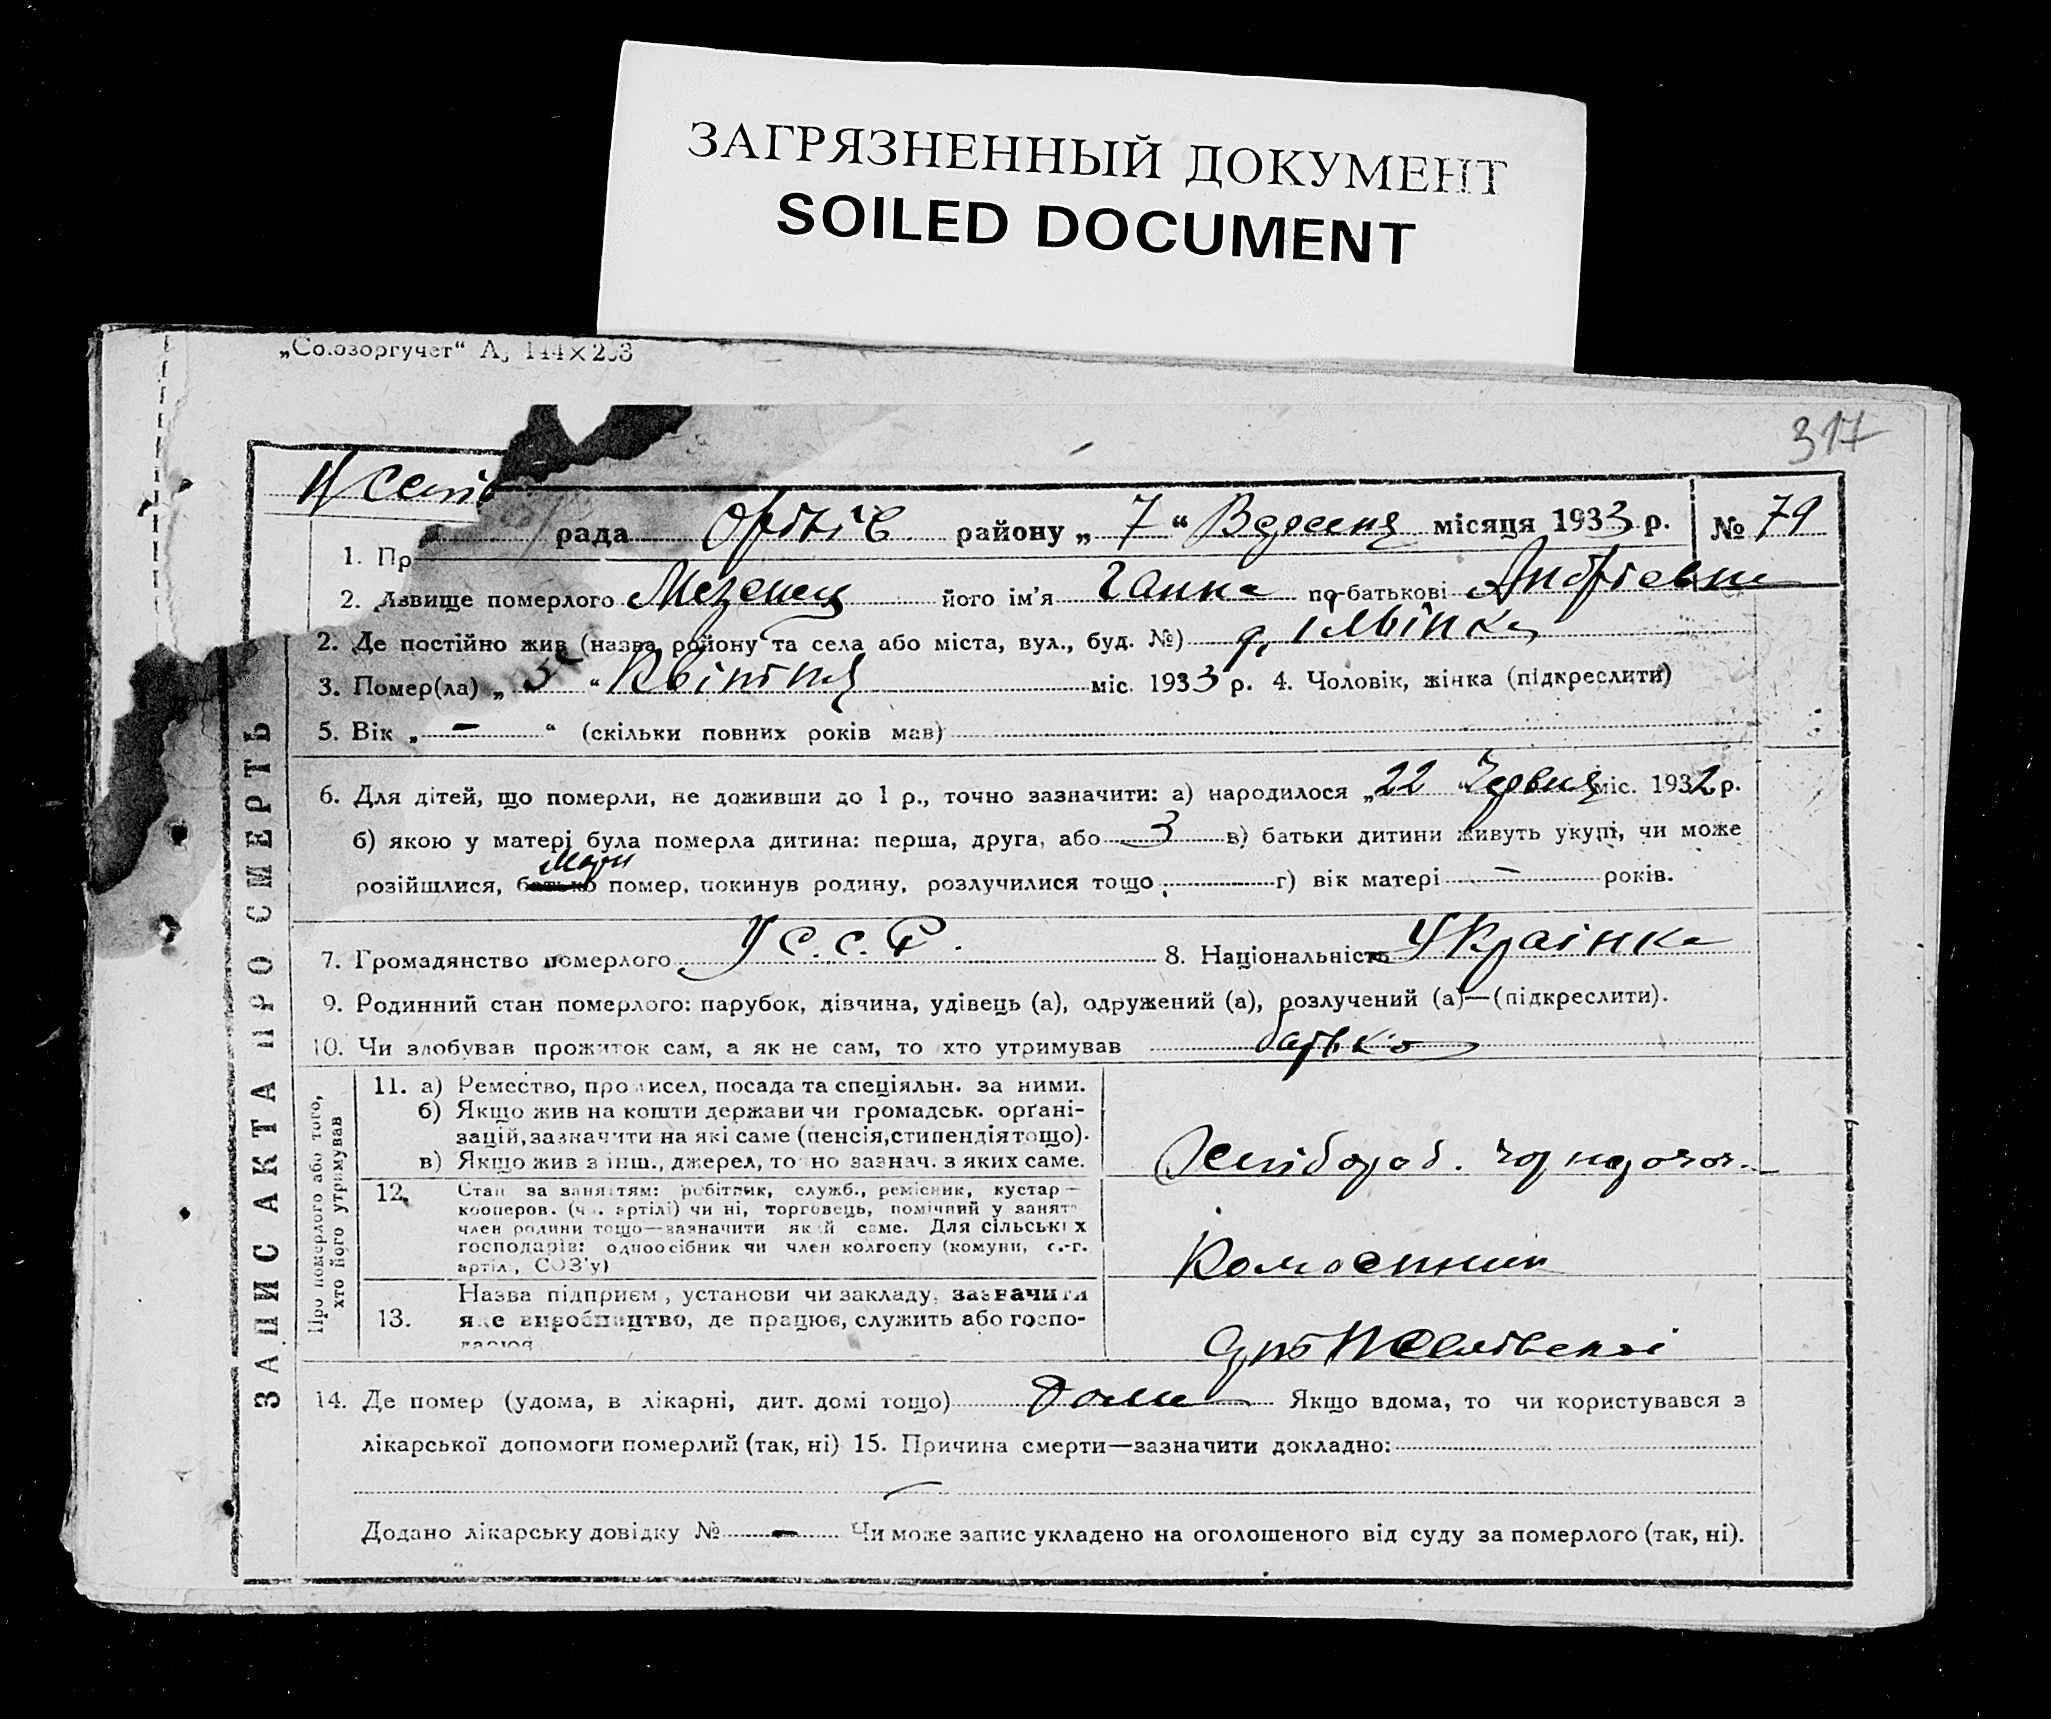 ЗАГРЯЗНЕННЫЙ ДОКУМЕНТ
SOILED DOCUMENT
„Союзоргучет“ А5 144×203
317
рада району „ 7 “ Вересня місяця 1933 р. № 79
1. Пр
2. Мезенец його ім'я Ганна по-батькові Андріевна
2. Де постійно жив (назва району та села або міста, вул., буд. №)
3. Помер(ла) „ “ Квітня міс. 1933 р. 4. Чоловік, жінка (підкреслити)
5. Вік „ — “ (скільки повних років мав)
6. Для дітей, що померли, не доживши до 1 р., точно зазначити: а) народилося „ 22 Червня міс. 1932 р.
б) якою у матері була померла дитина: перша, друга, або 3 в) батьки дитини живуть укупі, чи може
мати
розійшлися, батько помер, покинув родину, розлучилися тощо г) вік матері — років.
7. Громадянство померлого У С.С.Р. 8. Національність Українка
9. Родинний стан померлого: парубок, дівчина, удівець (а), одружений (а), розлучений (а)—(підкреслити).
10. Чи здобував прожиток сам, а як не сам, то хто утримував батько
ЗАПИС АКТА ПРО СМЕРТЬ
Про померлого або того,
хто його утримував
11. а) Ремество, промисел, посада та спеціяльн. за ними.
б) Якщо жив на кошти держави чи громадськ. орґані-
зацій, зазначити на які саме (пенсія, стипендія тощо).
в) Якщо жив з інш., джерел, точно зазнач. з яких саме.
12. Стан за заняттям: робітник, служб., ремісник, кустар—
кооперов. (чл. артілі) чи ні, торговець, помічний у занятт
член родини тощо—зазначити який саме. Для сільських
господарів: одноосібник чи член колгоспу (комуни, с.-г.
артіл., СОЗ'у)
13. Назва підприєм, установи чи закладу, зазначити
яке виробництво, де працює, служить або госпо-
дарює
14. Де помер (удома, в лікарні, дит. домі тощо) дома Якщо вдома, то чи користувався з
лікарської допомоги померлий (так, ні) 15. Причина смерти—зазначити докладно:
—
Додано лікарську довідку № — Чи може запис укладено на оголошеного від суду за померлого (так, ні).